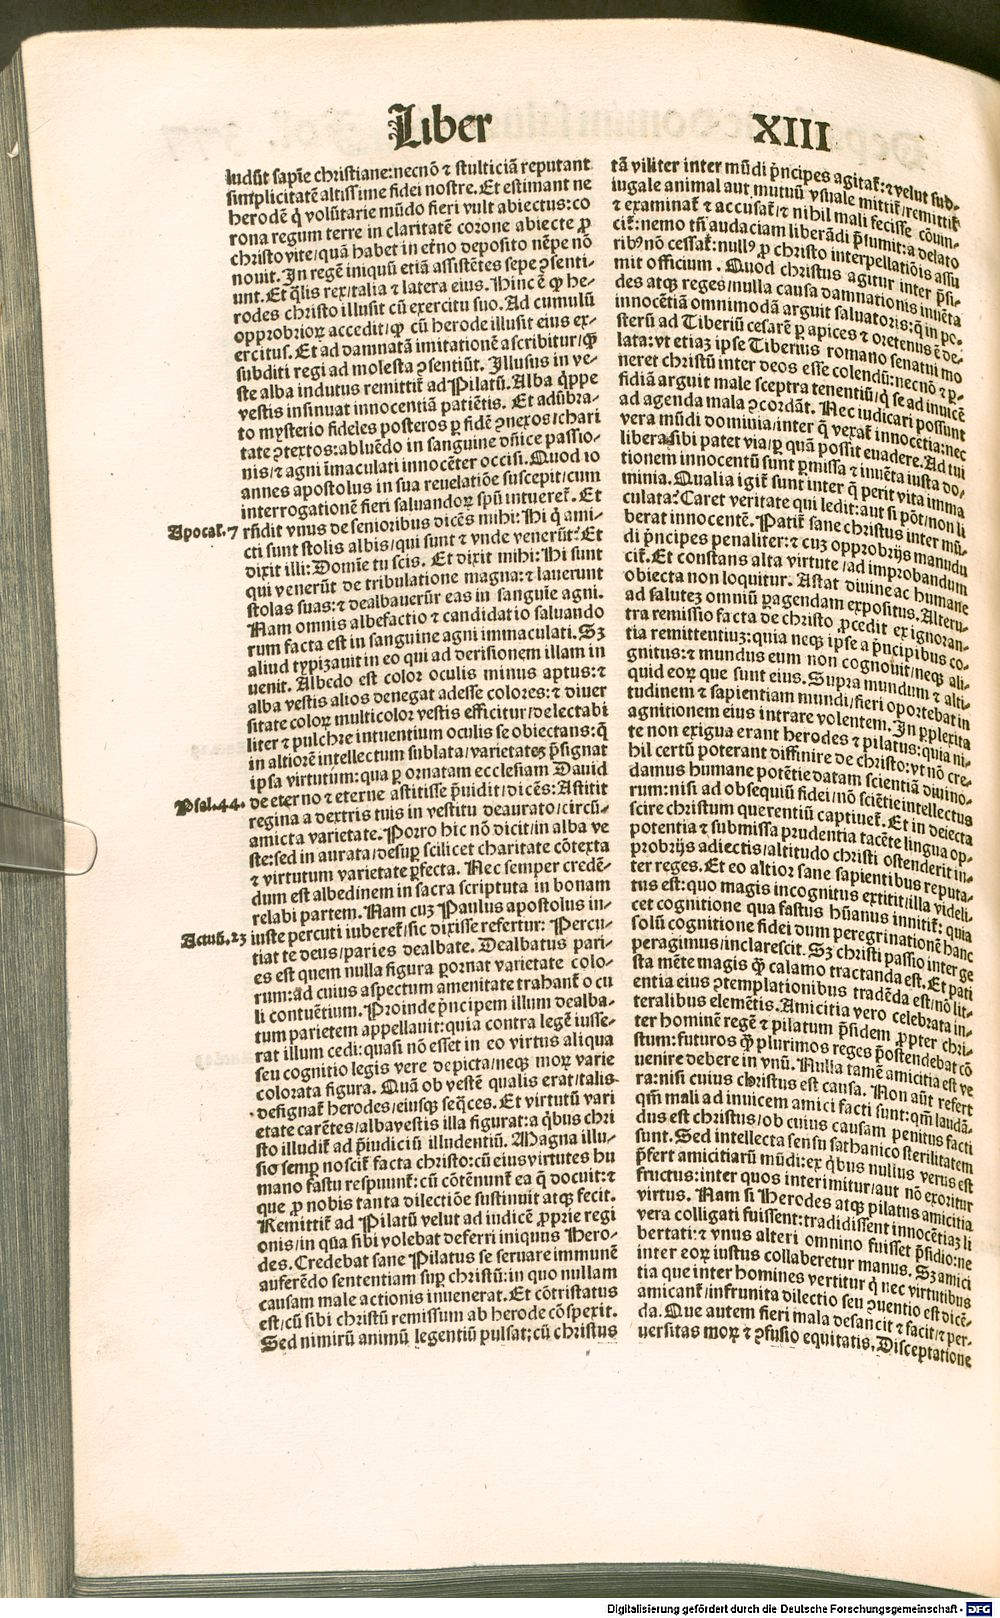 Liber XIII
ludūt sapīe christiane:necnō ⁊ stulticiā reputant
simplicitatē altissime fidei nostre. Et estimant ne
herodē q̇ volūtarie mūdo fieri vult abiectus:co
rona regum terre in claritatē corone abiecte ꝓ
christo vite/quā habet in et̄no deposito nēpe nō
nouit. In regē iniquū etiā assistētes sepe ꝯsenti⸗
unt. Et q̄lis rex/talia ⁊ latera eius. Hinc ē ꝙ he⸗
rodes christo illusit cū exercitu suo. Ad cumulū
opprobrioꝝ accedit/ꝙ cū herode illusit eius ex⸗
ercitus. Et ad damnatā imitationē ascribitur/ꝙ̄
subditi regi ad molesta ꝯsentiūt. Illusus in ve⸗
ste alba indutus remittit̄ ad Pilatū. Alba q̇ppe
vestis insinuat innocentiā patiētis. Et adūbra⸗
to mysterio fideles posteros ꝑ fidē ꝯnexos/chari
tate ꝯtextos:abluēdo in sanguine dn̄ice passio⸗
nis/⁊ agni īmaculati innocēter occisi. Quod io
annes apostolus in sua reuelatiōe suscepit/cum
interrogationē fieri saluandoꝝ spū intueret̄. Et
Apocal̄.7 rn̄dit vnus de senioribus dicēs mihi: Hi q̇ ami⸗
cti sunt stolis albis/qui sunt ⁊ vnde venerūt: Et
dixit illi: Domīe tu scis. Et dixit mihi: Hi sunt
qui venerūt de tribulatione magna:⁊ lauerunt
stolas suas:⁊ dealbauerūr eas in sanguīe agni.
Nam omnis albefactio ⁊ candidatio saluando
rum facta est in sanguine agni immaculati. Sꝫ
aliud typizauit in eo qui ad derisionem illam in
uenit. Albedo est color oculis minus aptus:⁊
alba vestis alios denegat adesse colores:⁊ diuer
sitate coloꝝ multicolor vestis efficitur/delectabi
liter ⁊ pulchre intuentium oculis se obiectans:q̄
in altiorē intellectum sublata/varietateꝫ p̄signat
ipsa virtutum:qua ꝑ ornatam ecclesiam Dauid
Psal.44. de eterno ⁊ eterne astitisse p̄uidit/dicēs: Astitit
regina a dextris tuis in vestitu deaurato/circū⸗
amicta varietate. Porro hic nō dicit/in alba ve
ste:sed in aurata/desuꝑ scilicet charitate cōtexta
⁊ virtutum varietate ꝑfecta. Nec semper credē⸗
dum est albedinem in sacra scriptuta in bonam
relabi partem. Nam cuꝫ Paulus apostolus in⸗
Actuū.23 iuste percuti iuberet̄/sic dixisse refertur: Percu⸗
tiat te deus/paries dealbate. Dealbatus pari⸗
es est quem nulla figura ꝑornat varietate colo⸗
rum:ad cuius aspectum amenitate trahant̄ ocu
li contuētium. Proinde p̄ncipem illum dealba⸗
tum parietem appellauit:quia contra legē iusse⸗
rat illum cedi:quasi nō esset in eo virtus aliqua
seu cognitio legis vere depicta/neqꝫ moꝝ varie
colorata figura. Quā ob vestē qualis erat/talis
designat̄ herodes/eiusqꝫ seq̄ces. Et virtutū vari
etate carētes/albavestis illa figurat:a q̇bus chri
sto illudit̄ ad p̄iudiciū illudentiū. Magna illu⸗
sio semꝑ noscit̄ facta christo:cū eius virtutes hu
mano fastu respuunt̄:cū cōtēnunt̄ ea q̄ docuit:⁊
que ꝓ nobis tanta dilectiōe sustinuit atqꝫ fecit.
Remittit̄ ad Pilatū velut ad iudicē ꝓprie regi
onis/in qūa sibi volebat deferri iniquus Hero⸗
des. Credebat sane Pilatus se seruare immunē
auferēdo sententiam suꝑ christū:in quo nullam
causam male actionis inuenerat. Et cōtristatus
est/cū sibi christū remissum ab herode cōspexit.
Sed nimirū animū legentiū pulsat;cū christus
tā viliter inter mūdi p̄ncipes agitat̄:⁊ velut sub⸗
iugale animal aut mutuū vsuale mittit̄/remittit̄
⁊ examinat̄ ⁊ accusat̄/⁊ nihil mali fecisse cōuin⸗
cit̄:nemo tn̄ audaciam liberādi p̄sumit:a delato
ribꝰ nō cessat̄:nullꝰ ꝓ christo interpellatiōis assu
mit officium. Quod christus agitur inter p̄si⸗
des atqꝫ reges/nulla causa damnationis inuēta
innocētiā omnimodā arguit saluatoris:q̄ in po⸗
sterū ad Tiberiū cesarē ꝑ apices ⁊ oretenus ē de⸗
lata:vt etiaꝫ ipse Tiberius romano senatui mo
neret christū inter deos esse colendū:necnō ⁊ ꝑ⸗
fidiā arguit male sceptra tenentiū/q̇ se ad inuicē
ad agenda mala ꝯcordāt. Nec iudicari possunt
vera mūdi dominia/inter q̄ vexat̄ innocētia:nec
libera sibi patet via/ꝑ quā possit euadere. Ad tui
tionem innocentū sunt ꝑmissa ⁊ inuēta iusta do⸗
minia. Qualia igit̄ sunt inter q̄ perit vita imma
culata? Caret veritate qui ledit:aut si pōt/non li
berat innocentē. Patit̄ sane christus inter mū⸗
di p̄ncipes penaliter:⁊ cuꝫ opprobrijs manudu
cit̄. Et constans alta virtute/ad improbandum
obiecta non loquitur. Astat diuine ac humane
ad saluteꝫ omniū ꝑagendam expositus. Alteru⸗
tra remissio facta de christo ꝓcedit ex ignoran⸗
tia remittentiuꝫ:quia neqꝫ ipse a p̄ncipibus co⸗
gnitus:⁊ mundus eum non cognouit/neqꝫ ali⸗
quid eoꝝ que sunt eius. Supra mundum ⁊ alti⸗
tudinem ⁊ sapientiam mundi/fieri oportebat in
agnitionem eius intrare volentem. In ꝑplexita
te non exigua erant herodes ⁊ pilatus:quia ni⸗
hil certū poterant diffinire de christo:vt nō cre⸗
damus humane potētie datam scientiā diuino⸗
rum:nisi ad obsequiū fidei/nō sciētie intellectus
scire christum querentiū captiuet̄. Et in deiecta
potentia ⁊ submissa prudentia tacēte lingua op⸗
probrijs adiectis/altitudo christi ostenderit in⸗
ter reges. Et eo altior sane sapientibus reputa⸗
tus est:quo magis incognitus extitit/illa videli⸗
cet cognitione qua fastus hūanus innitit̄: quia
solū cognitione fidei dum peregrinationē hanc
peragimus/inclarescit. Sꝫ christi passio inter ge
sta mēte magis ꝙ̄ calamo tractanda est. Et pati
entia eius ꝯtemplationibus tradēda est/nō lit⸗
teralibus elemētis. Amicitia vero celebrata in⸗
ter hominē regē ⁊ pilatum p̄sidem ꝓpter chri⸗
stum:futuros ꝙ̄ plurimos reges p̄ostendebat cō
uenire debere in vnū. Nulla tamē amicitia est ve
ra:nisi cuius christus est causa. Non aūt refert
qm̄ mali ad inuicem amici facti sunt:qm̄ laudā⸗
dus est christus/ob cuius causam penitus facti
sunt. Sed intellecta sensu sathanico sterilitatem
p̄fert amicitiarū mūdi:ex q̇bus nullus verus est
fructus:inter quos interimitur/aut nō exoritur
virtus. Nam si Herodes atqꝫ pilatus amicitia
vera colligati fuissent:tradidissent innocētiaꝫ li
bertati:⁊ vnus alteri omnino fuisset p̄sidio:ne
inter eoꝝ iustus collaberetur manus. Sꝫ amici
tia que inter homines vertitur q̇ nec virtutibus
amicant̄/infrunita dilectio seu ꝯuentio est dicē⸗
da. Que autem fieri mala desancit ⁊ facit/⁊ per⸗
uersitas moꝝ ⁊ ꝯfusio equitatis. Disceptatione
Digitalisierung gefördert durch die Deutsche Forschungsgemeinschaft - DFG